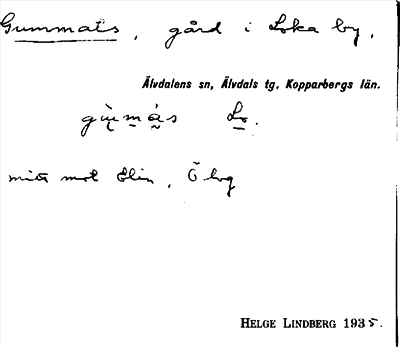 Gummats, gård i Loka by,
Älvdalens sn, Älvdals tg. Kopparbergs län.
gùmás Lo.
mitt mot Elin, Ö
HELGE LINDBERG 1935.